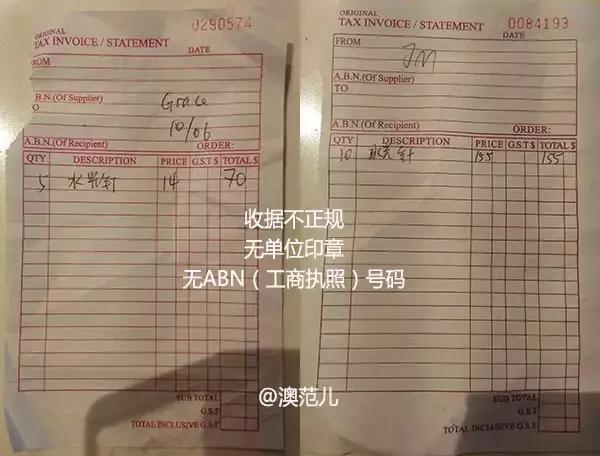 ORIGINAL
TAX INVOICE / STATEMENT
0290574
DATE
FROM
A.B.N.(Of Supplier)
Grace
TO
10/06
A.B.N.(Of Recipient)
ORDER:
QTY DESCRIPTION PRICE G.S.T $ TOTAL $
5 水光针 14 70
SUB TOTAL
G.S.T
TOTAL INCLUSIVE G.S.T
ORIGINAL
TAX INVOICE / STATEMENT
0084193
DATE
FROM
JM
A.B.N.(Of Supplier)
TO
A.B.N.(Of Recipient)
ORDER:
QTY DESCRIPTION PRICE G.S.T $ TOTAL $
10 水光针 155 155
SUB TOTAL
G.S.T
TOTAL INCLUSIVE G.S.T
收据不正规
无单位印章
无ABN（工商执照）号码
@澳范儿